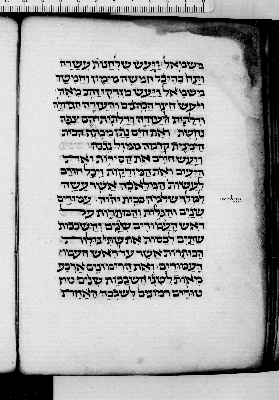 משמאל ויעש שלחנות עשרה
וינח בהיכל חמשה מימין וחמשה
משמאל ויעש מזרקי זהב מאה
ויעש חצר הכהנים והעזרה הגדולה
ודלתות לעזרה ודלתותיהם צפה
נחשת ואת הים נתן מכתף הבית
הימנית קדמה ממול נגבה
ויעש חורם את הסירות ואת
היעים ואת המזרקות ויכל חורם
לעשות המלאכה אשר עשה
למלך שלמה בבית יהוה עמודים
שנים והגלות והכתרות על
ראש העמודים שנים והשבכות
שתים לכסות את שתי גלות
הכותרות אשר על ראש העמו
העמודים ואת הרמונים ארבע
מאות לשתי השבכות שנים טור
טורים רמונים לשבכה האחת